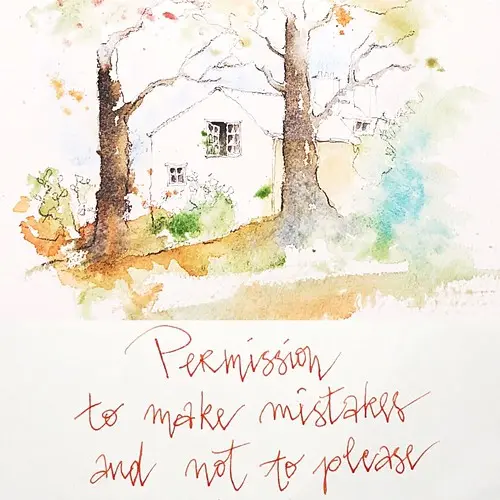 Permission
to make mistakes
and not to please